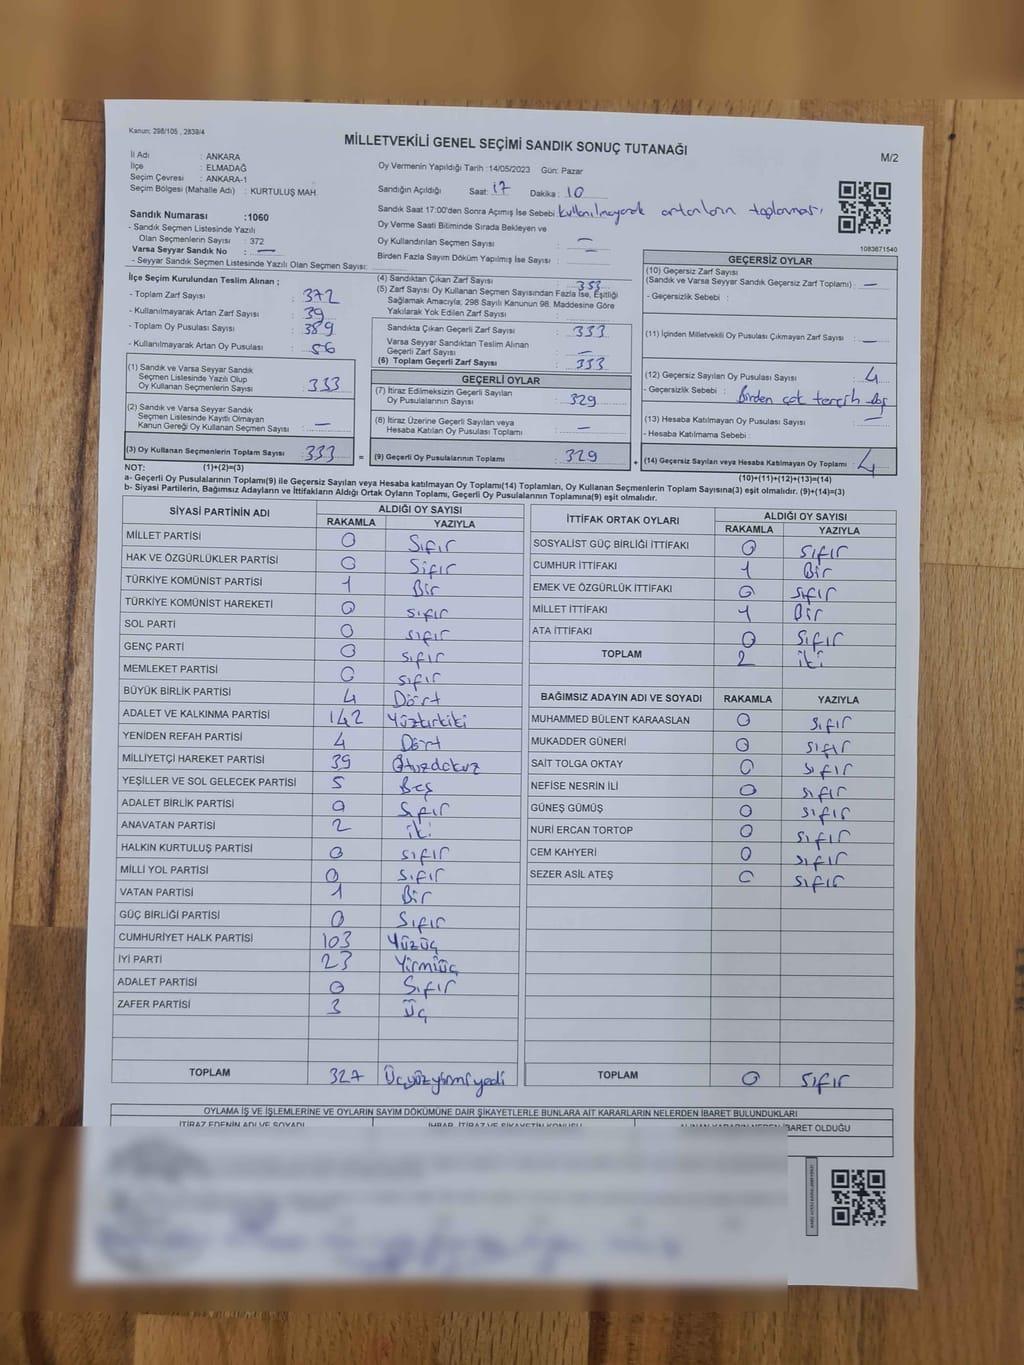 Kanun: 298/105 , 2839/4
MİLLETVEKİLİ GENEL SEÇİMİ SANDIK SONUÇ TUTANAĞI
M/2
İl Adı : ANKARA
İlçe : ELMADAĞ
Seçim Çevresi : ANKARA-1
Seçim Bölgesi (Mahalle Adı) : KURTULUŞ MAH.
Oy Vermenin Yapıldığı Tarih :14/05/2023 Gün: Pazar
Sandığın Açıldığı Saat: 17 Dakika : 10
Sandık Saat 17:00'den Sonra Açımış İse Sebebi: kullanılmayarak artanların toplanması
Oy Verme Saati Bitiminde Sırada Bekleyen ve
Oy Kullandırılan Seçmen Sayısı : —
Birden Fazla Sayım Döküm Yapılmış İse Sayısı : —
Sandık Numarası :1060
- Sandık Seçmen Listesinde Yazılı
Olan Seçmenlerin Sayısı : 372
Varsa Seyyar Sandık No : —
- Seyyar Sandık Seçmen Listesinde Yazılı Olan Seçmen Sayısı:
1083671540
İlçe Seçim Kurulundan Teslim Alınan ;
- Toplam Zarf Sayısı : 372
- Kullanılmayarak Artan Zarf Sayısı : 39
- Toplam Oy Pusulası Sayısı : 389
- Kullanılmayarak Artan Oy Pusulası : 56
(1) Sandık ve Varsa Seyyar Sandık
Seçmen Listesinde Yazılı Olup
Oy Kullanan Seçmenlerin Sayısı : 333
(2) Sandık ve Varsa Seyyar Sandık
Seçmen Listesinde Kayıtlı Olmayan
Kanun Gereği Oy Kullanan Seçmen Sayısı : —
(3) Oy Kullanan Seçmenlerin Toplam Sayısı : 333
(4) Sandıktan Çıkan Zarf Sayısı : 333
(5) Zarf Sayısı Oy Kullanan Seçmen Sayısından Fazla İse, Eşitliği
Sağlamak Amacıyla; 298 Sayılı Kanunun 98. Maddesine Göre
Yakılarak Yok Edilen Zarf Sayısı :
Sandıkta Çıkan Geçerli Zarf Sayısı : 333
Varsa Seyyar Sandıktan Teslim Alınan
Geçerli Zarf Sayısı : —
(6) Toplam Geçerli Zarf Sayısı : 333
GEÇERLİ OYLAR
(7) İtiraz Edilmeksizin Geçerli Sayılan
Oy Pusulalarının Sayısı : 329
(8) İtiraz Üzerine Geçerli Sayılan veya
Hesaba Katılan Oy Pusulası Toplamı : —
= (9) Geçerli Oy Pusulalarının Toplamı : 329
GEÇERSİZ OYLAR
(10) Geçersiz Zarf Sayısı
(Sandık ve Varsa Seyyar Sandık Geçersiz Zarf Toplamı) : —
- Geçersizlik Sebebi :
(11) İçinden Milletvekili Oy Pusulası Çıkmayan Zarf Sayısı : —
(12) Geçersiz Sayılan Oy Pusulası Sayısı : 4
- Geçersizlik Sebebi : Birden çok tercih
(13) Hesaba Katılmayan Oy Pusulası Sayısı : —
- Hesaba Katılmama Sebebi :
+ (14) Geçersiz Sayılan veya Hesaba Katılmayan Oy Toplamı : 4
NOT: (1)+(2)=(3)
(10)+(11)+(12)+(13)=(14)
a- Geçerli Oy Pusulalarının Toplamı(9) ile Geçersiz Sayılan veya Hesaba Katılmayan Oy Toplamı(14) Toplamları, Oy Kullanan Seçmenlerin Toplam Sayısına(3) eşit olmalıdır. (9)+(14)=(3)
b- Siyasi Partilerin, Bağımsız Adayların ve İttifakların Aldığı Ortak Oyların Toplamı, Geçerli Oy Pusulalarının Toplamına(9) eşit olmalıdır.
SİYASİ PARTİNİN ADI ALDIĞI OY SAYISI
RAKAMLA YAZIYLA
MİLLET PARTİSİ 0 Sıfır
HAK VE ÖZGÜRLÜKLER PARTİSİ 0 Sıfır
TÜRKİYE KOMÜNİST PARTİSİ 1 Bir
TÜRKİYE KOMÜNİST HAREKETİ 0 sıfır
SOL PARTİ 0 sıfır
GENÇ PARTİ 0 sıfır
MEMLEKET PARTİSİ 0 sıfır
BÜYÜK BİRLİK PARTİSİ 4 Dört
ADALET VE KALKINMA PARTİSİ 142 Yüzkırkiki
YENİDEN REFAH PARTİSİ 4 Dört
MİLLİYETÇİ HAREKET PARTİSİ 39 Otuzdokuz
YEŞİLLER VE SOL GELECEK PARTİSİ 5 Beş
ADALET BİRLİK PARTİSİ 0 Sıfır
ANAVATAN PARTİSİ 2 iki
HALKIN KURTULUŞ PARTİSİ 0 sıfır
MİLLİ YOL PARTİSİ 0 Sıfır
VATAN PARTİSİ 1 Bir
GÜÇ BİRLİĞİ PARTİSİ 0 Sıfır
CUMHURİYET HALK PARTİSİ 103 Yüzüç
İYİ PARTİ 23 Yirmiüç
ADALET PARTİSİ 0 Sıfır
ZAFER PARTİSİ 3 Üç
TOPLAM 327 Üçyüzyirmiyedi
İTTİFAK ORTAK OYLARI ALDIĞI OY SAYISI
RAKAMLA YAZIYLA
SOSYALİST GÜÇ BİRLİĞİ İTTİFAKI 0 sıfır
CUMHUR İTTİFAKI 1 Bir
EMEK VE ÖZGÜRLÜK İTTİFAKI 0 sıfır
MİLLET İTTİFAKI 1 Bir
ATA İTTİFAKI 0 sıfır
TOPLAM 2 iki
BAĞIMSIZ ADAYIN ADI VE SOYADI RAKAMLA YAZIYLA
MUHAMMED BÜLENT KARAASLAN 0 sıfır
MUKADDER GÜNERİ 0 sıfır
SAİT TOLGA OKTAY 0 sıfır
NEFİSE NESRİN İLİ 0 sıfır
GÜNEŞ GÜMÜŞ 0 sıfır
NURİ ERCAN TORTOP 0 sıfır
CEM KAHYERİ 0 sıfır
SEZER ASİL ATEŞ 0 sıfır
TOPLAM 0 sıfır
OYLAMA İŞ VE İŞLEMLERİNE VE OYLARIN SAYIM DÖKÜMÜNE DAİR ŞİKAYETLERLE BUNLARA AİT KARARLARIN NELERDEN İBARET BULUNDUKLARI
İTİRAZ EDENİN ADI VE SOYADI İHBAR, İTİRAZ VE ŞİKAYETİN KONUSU ALINAN KARARIN NEDEN İBARET OLDUĞU